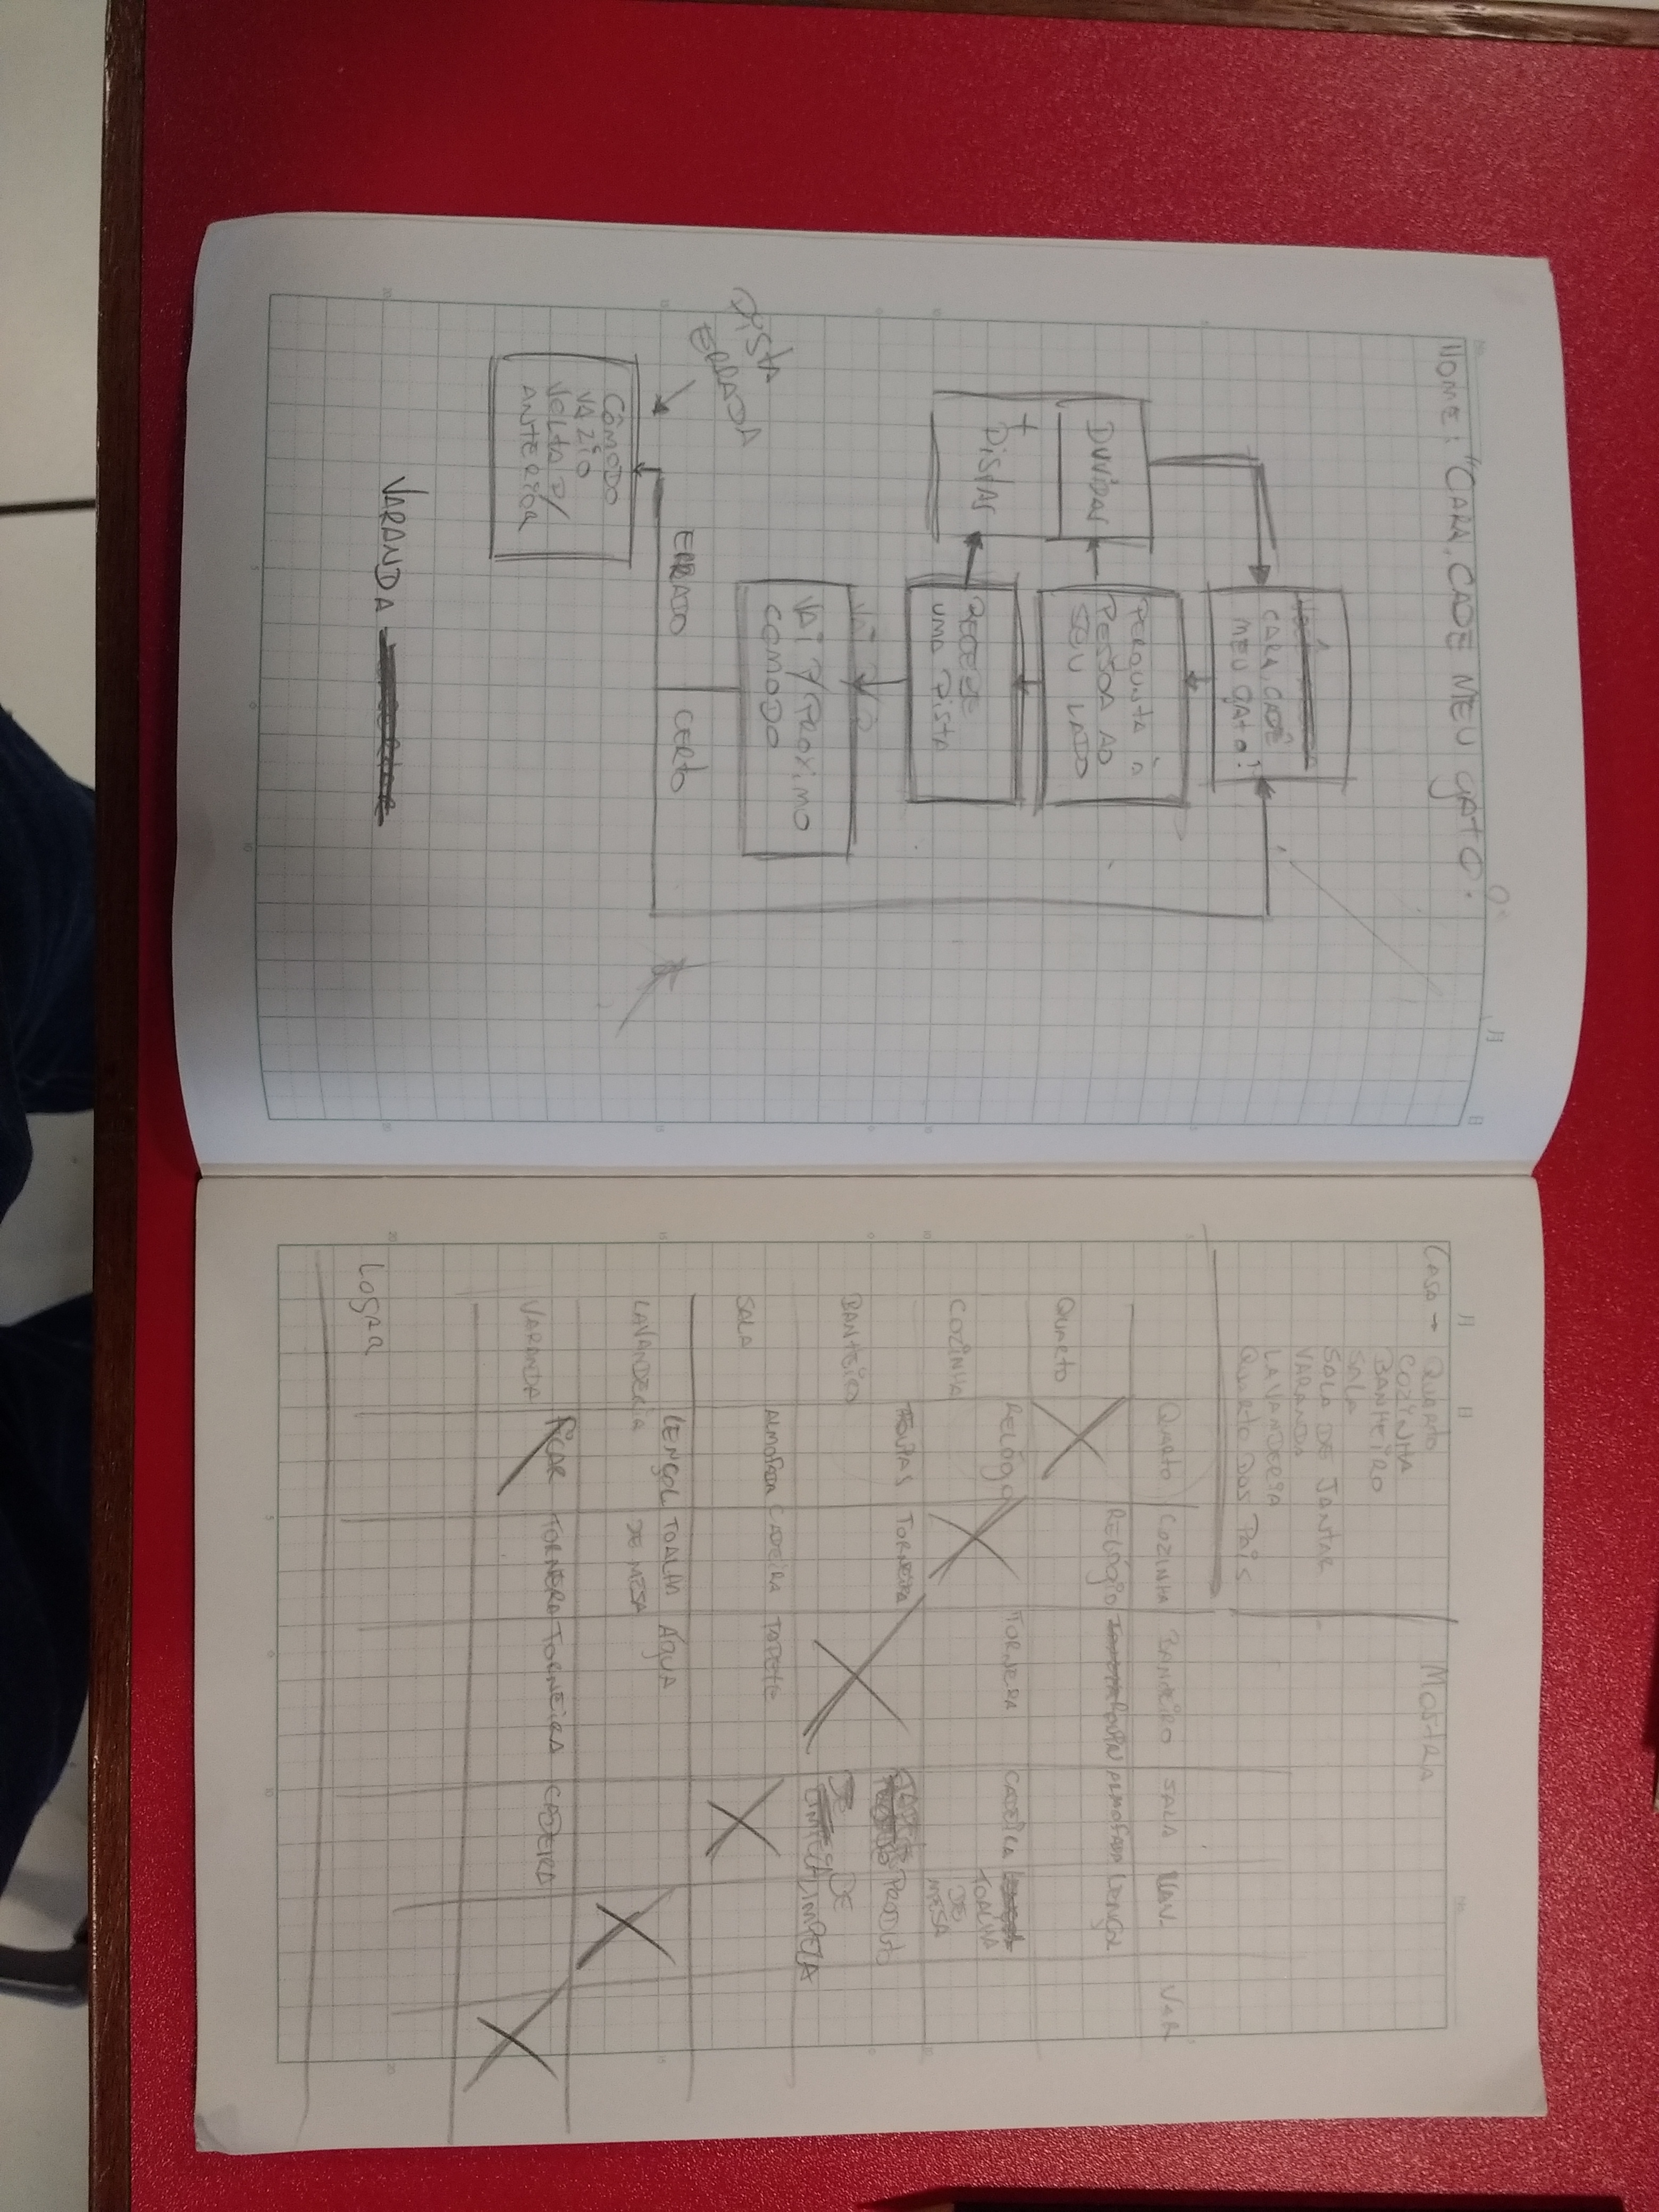 NOME: "CARA, CADE MEU GATO."
CARA, CADÊ
MEU GATO!
PERGUNTA À
PESSOA AO
SEU LADO
DUVIDAS
+
PISTAS
RECEBE
UMA PISTA
VAI P/ PROXIMO
COMODO
PISTA
ERRADA
ERRADO
CERTO
CÔMODO
VAZIO
VOLTA P/
ANTERIOR
VARANDA
CASA → QUARTO
COZINHA
BANHEIRO
SALA
SALA DE JANTAR
VARANDA
LAVANDERIA
QUARTO DOS PAIS
MOSTRA
QUARTO COZINHA BANHEIRO SALA LAV. VAR
QUARTO RELÓGIO ROUPA ALMOFADA LENÇOL
COZINHA RELÓGIO TORNEIRA CADEIRA TOALHA
DE
MESA
BANHEIRO ROUPAS TORNEIRA PRODUTO
DE
LIMPEZA
SALA ALMOFADA CADEIRA TAPETE
LAVANDERIA LENÇOL TOALHA ÁGUA
DE MESA
VARANDA TORNERA TORNEIRA CADEIRA